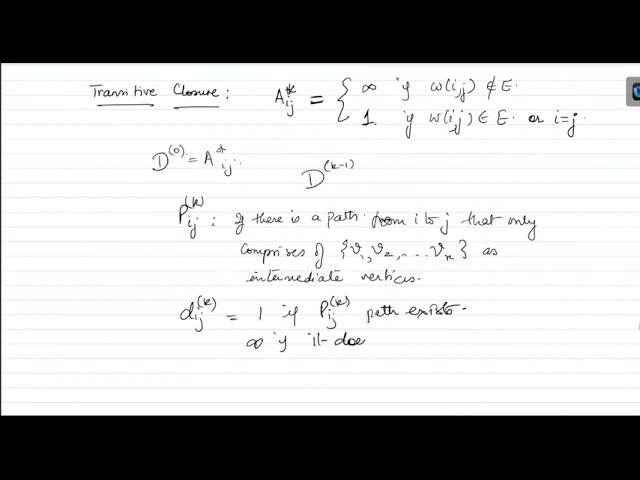 Transitive Closure : A*ij = { ∞ if w(i,j) ∉ E.
1. if w(i,j) ∈ E. or i=j.
D^(0) = A*ij.
D^(k-1)
P_ij^(k) : If there is a path from i to j that only
comprises of {v1, v2, .... vk} as
intermediate vertices.
d_ij^(k) = 1 if P_ij^(k) path exists.
∞ if it doe